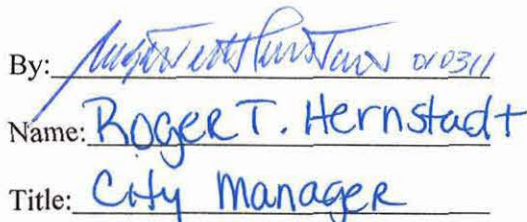 By: 010311
Name: Roger T. Hernstadt
Title: City Manager